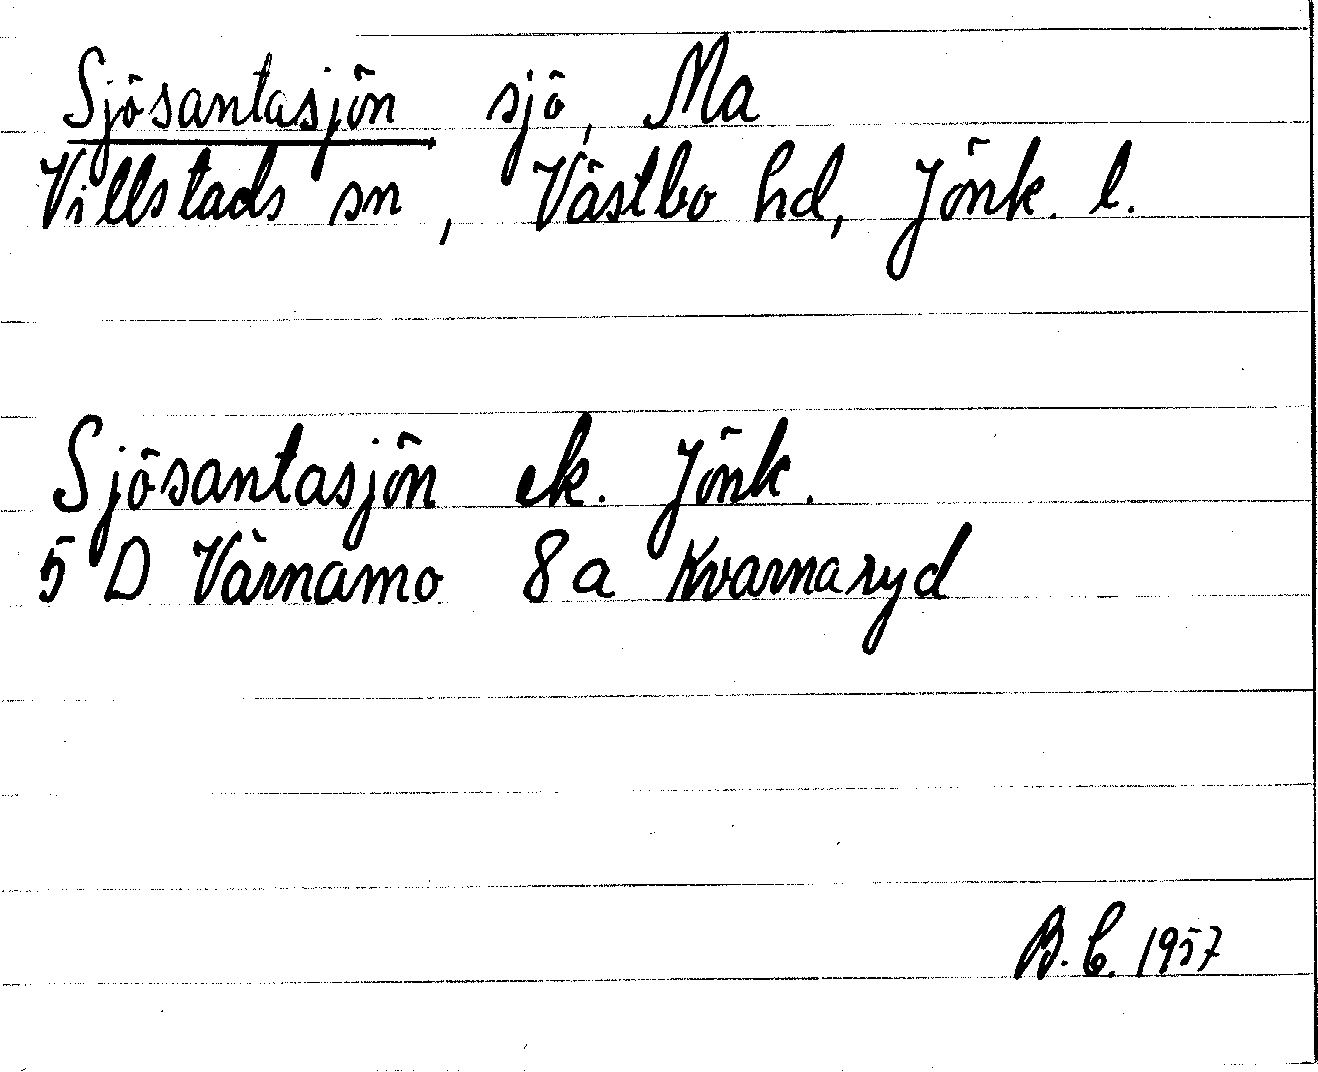 Sjösantasjön sjö, Ma
Villstads sn, Västbo hd, Jönk. l.
Sjösantasjön ek. Jönk.
5 D Värnamo 8 a Kvarnaryd
B. C. 1957